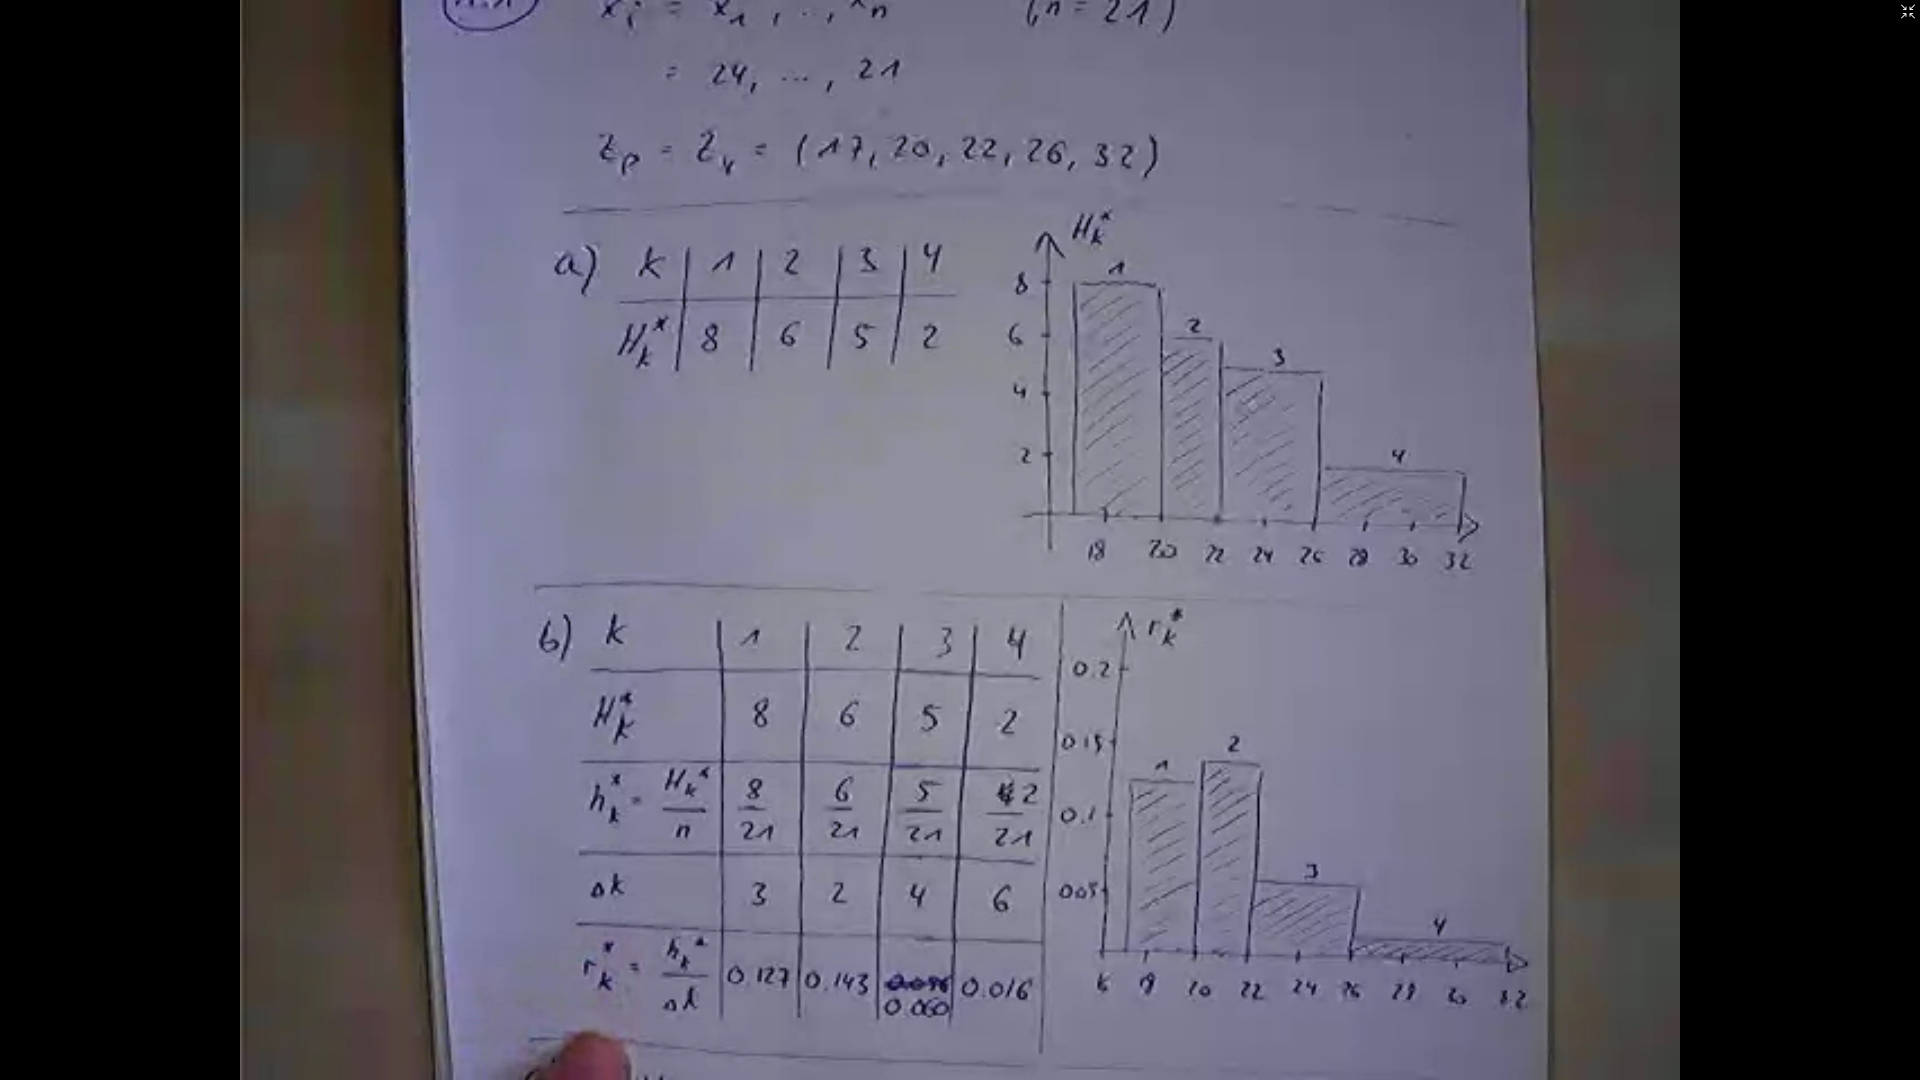 x_i = x_1, .., x_n (n = 21)
= 24, ..., 21
z_p = z_4 = (17, 20, 22, 26, 32)
a) k 1 2 3 4
H_k^* 8 6 5 2
H_k^*
8
6
4
2
1
2
3
4
18 20 22 24 26 28 30 32
b) k 1 2 3 4
H_k^* 8 6 5 2
h_k^* = H_k^*/n 8/21 6/21 5/21 2/21
Δk 3 2 4 6
r_k^* = h_k^*/Δk 0.127 0.143 0.060 0.016
r_k^*
0.2
0.15
0.1
0.05
1
2
3
4
18 20 22 24 26 28 30 32